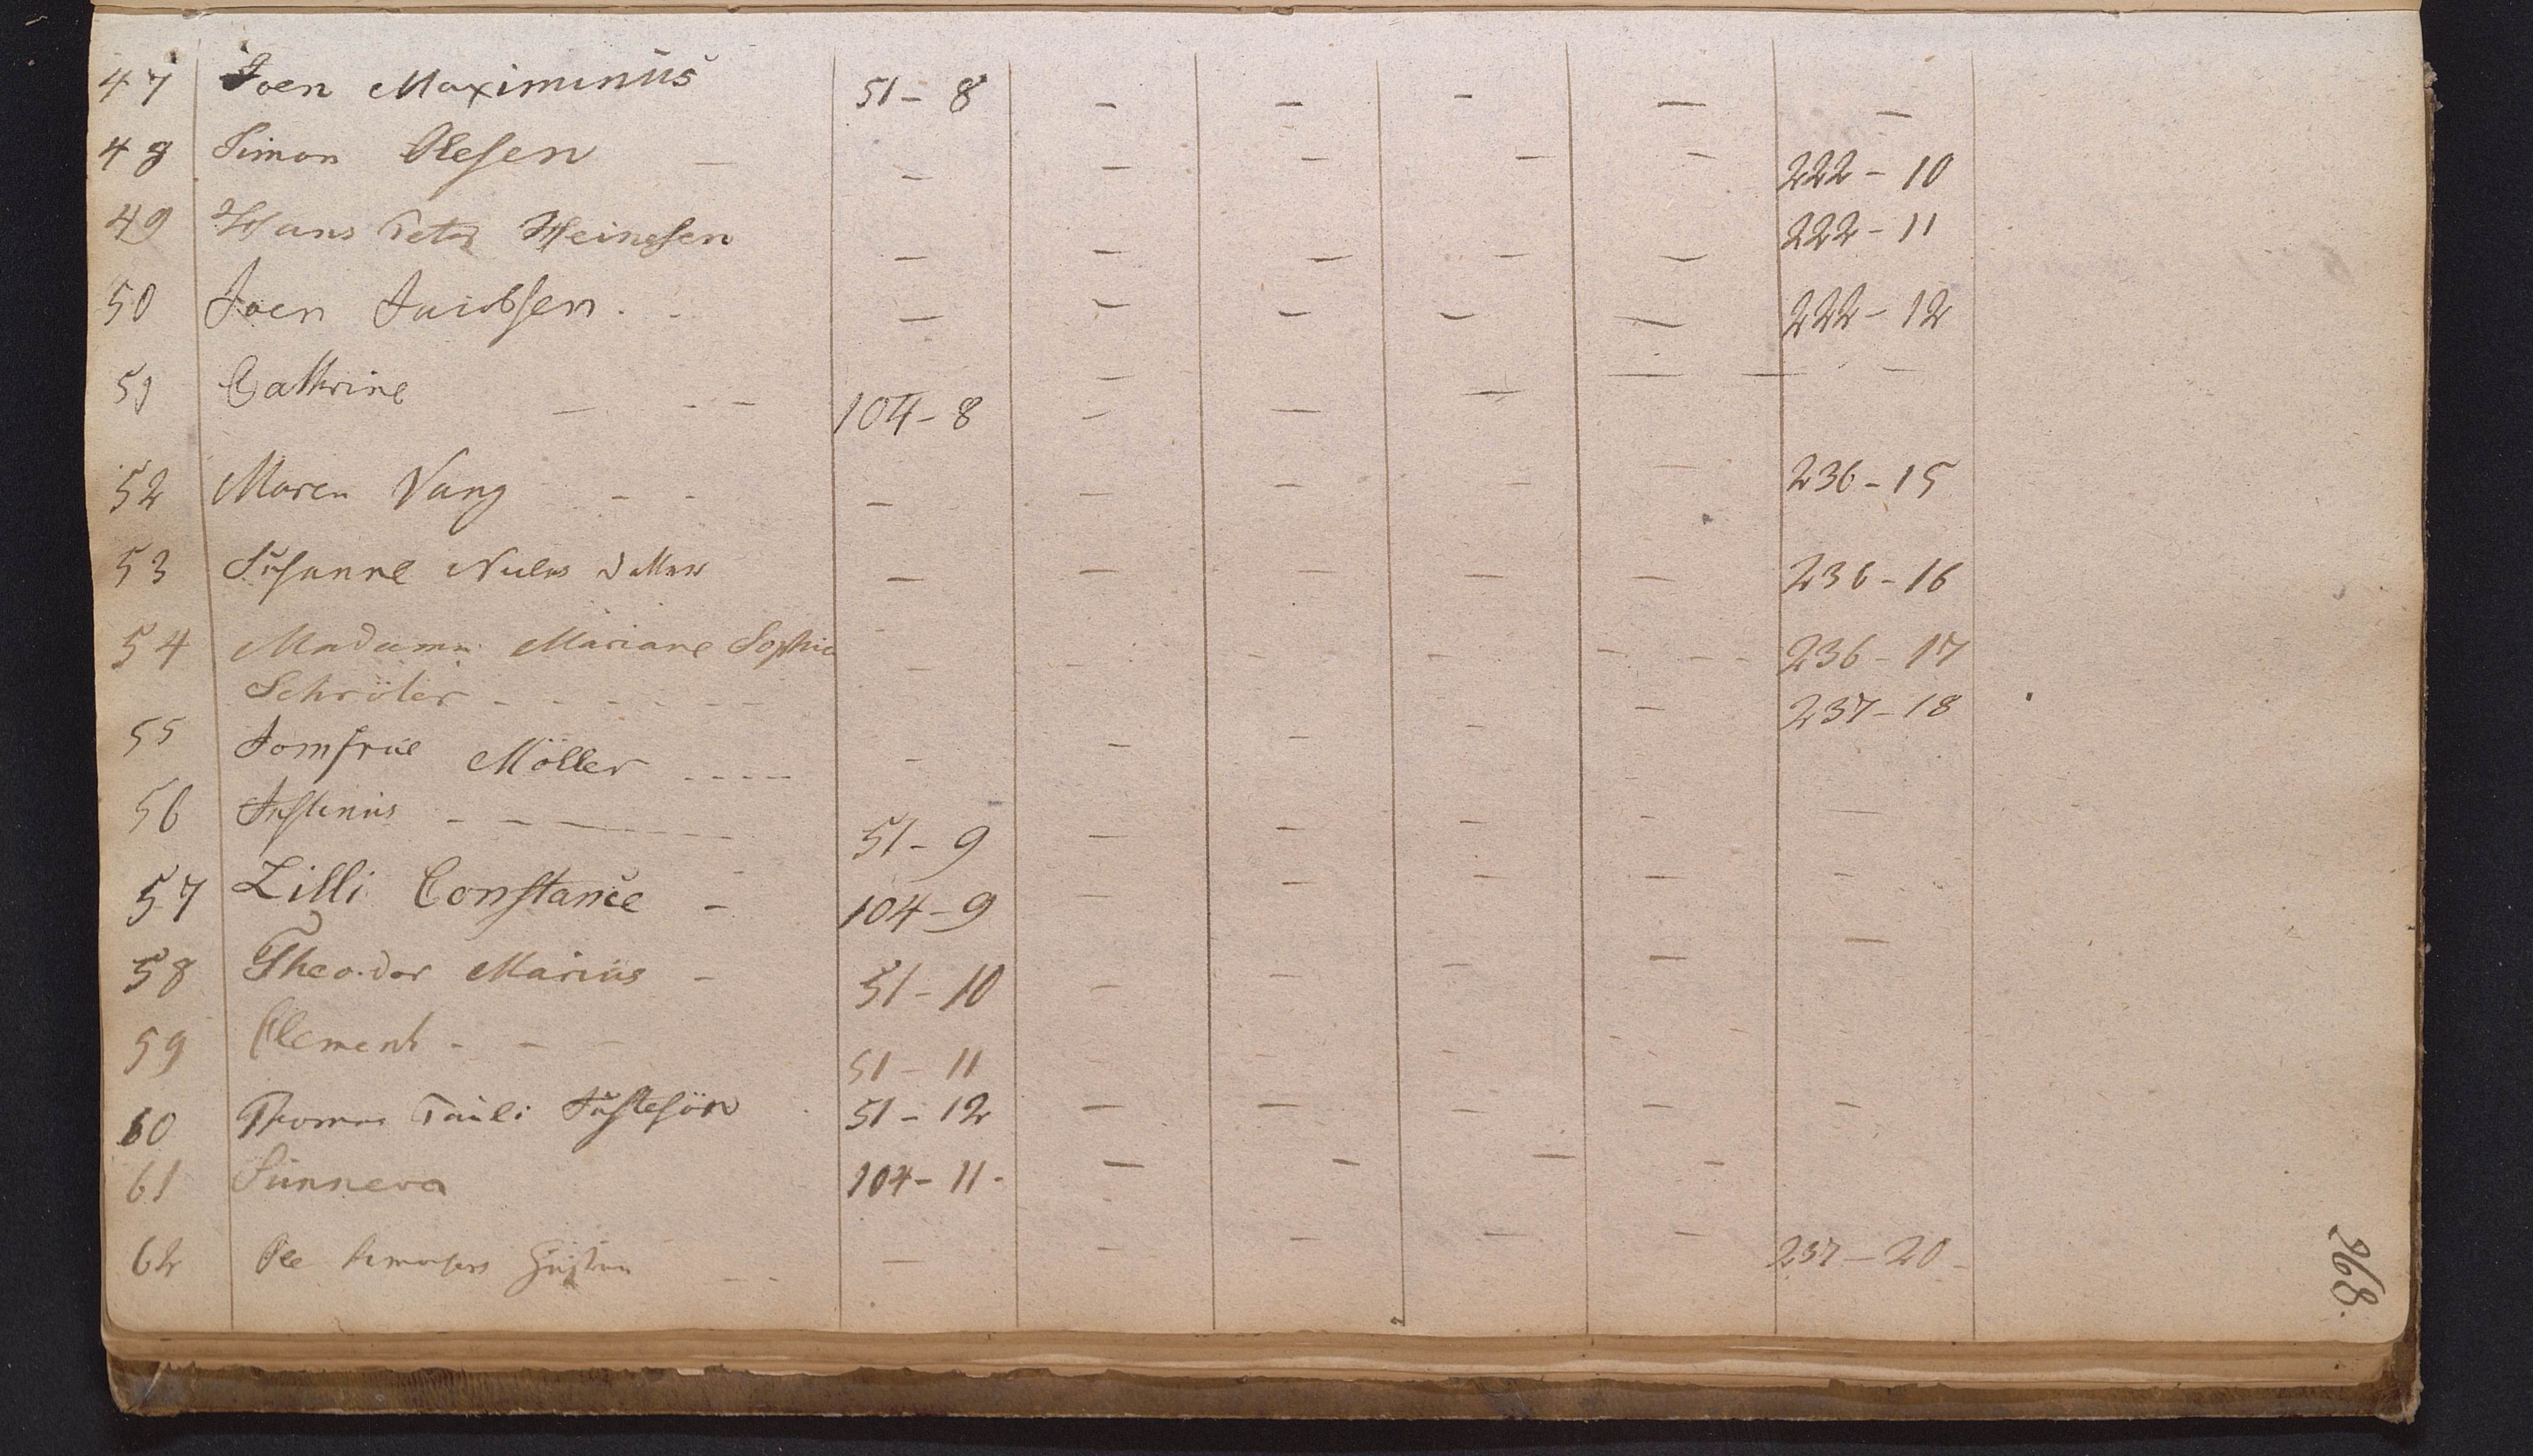 47 Joen Maximinus 51 - 8 - - - - -
48 Simon Olesen - - - - - - 222 - 10
49 Hans Peter Heinesen - - - - - 222 - 11
50 Joen Jacobsen - - - - - 222 - 12
51 Cathrine - - - 104 - 8 - - - - -
52 Maren Vang - - - - - - - 236 - 15
53 Susanne datter - - - - - 236 - 16
54 Madame Mariane Sophie - - - - - 236 - 17
Schröter - - - - - - 237 - 18
55 Jomfrue Möller - - - - - - - - -
56 Justinus - - - - 51 - 9 - - - - -
57 Lilli Constance - 104 - 9 - - - - -
58 Theodor Marius - 51 - 10 - - - - -
59 Clement - - - 51 - 11 - - - - -
60 Thomas Pauli Justesön 51 - 12 - - - - -
61 Sunneva 104 - 11 - - - - -
62 Ole - - - - - - 237 - 20 -
268.